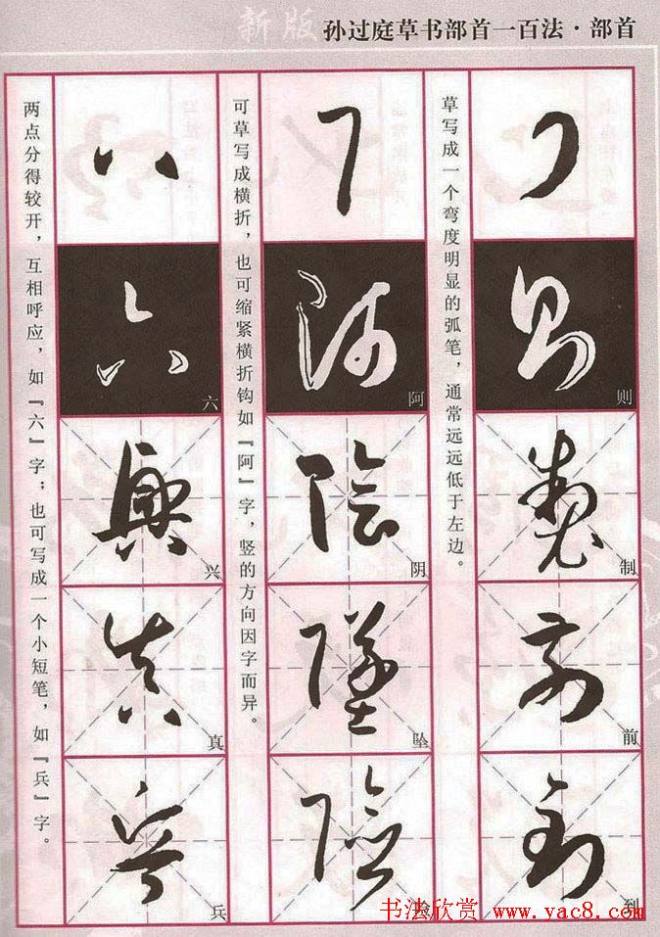 新版 孙过庭草书部首一百法·部首
草写成一个弯度明显的弧笔，通常远远低于左边。
则
制
前
到
可草写成横折，也可缩紧横折钩如『阿』字，竖的方向因字而异。
阿
阴
坠
险
两点分得较开，互相呼应，如『六』字；也可写成一个小短笔，如『兵』字。
六
兴
真
兵
书法欣赏 www.yac8.com